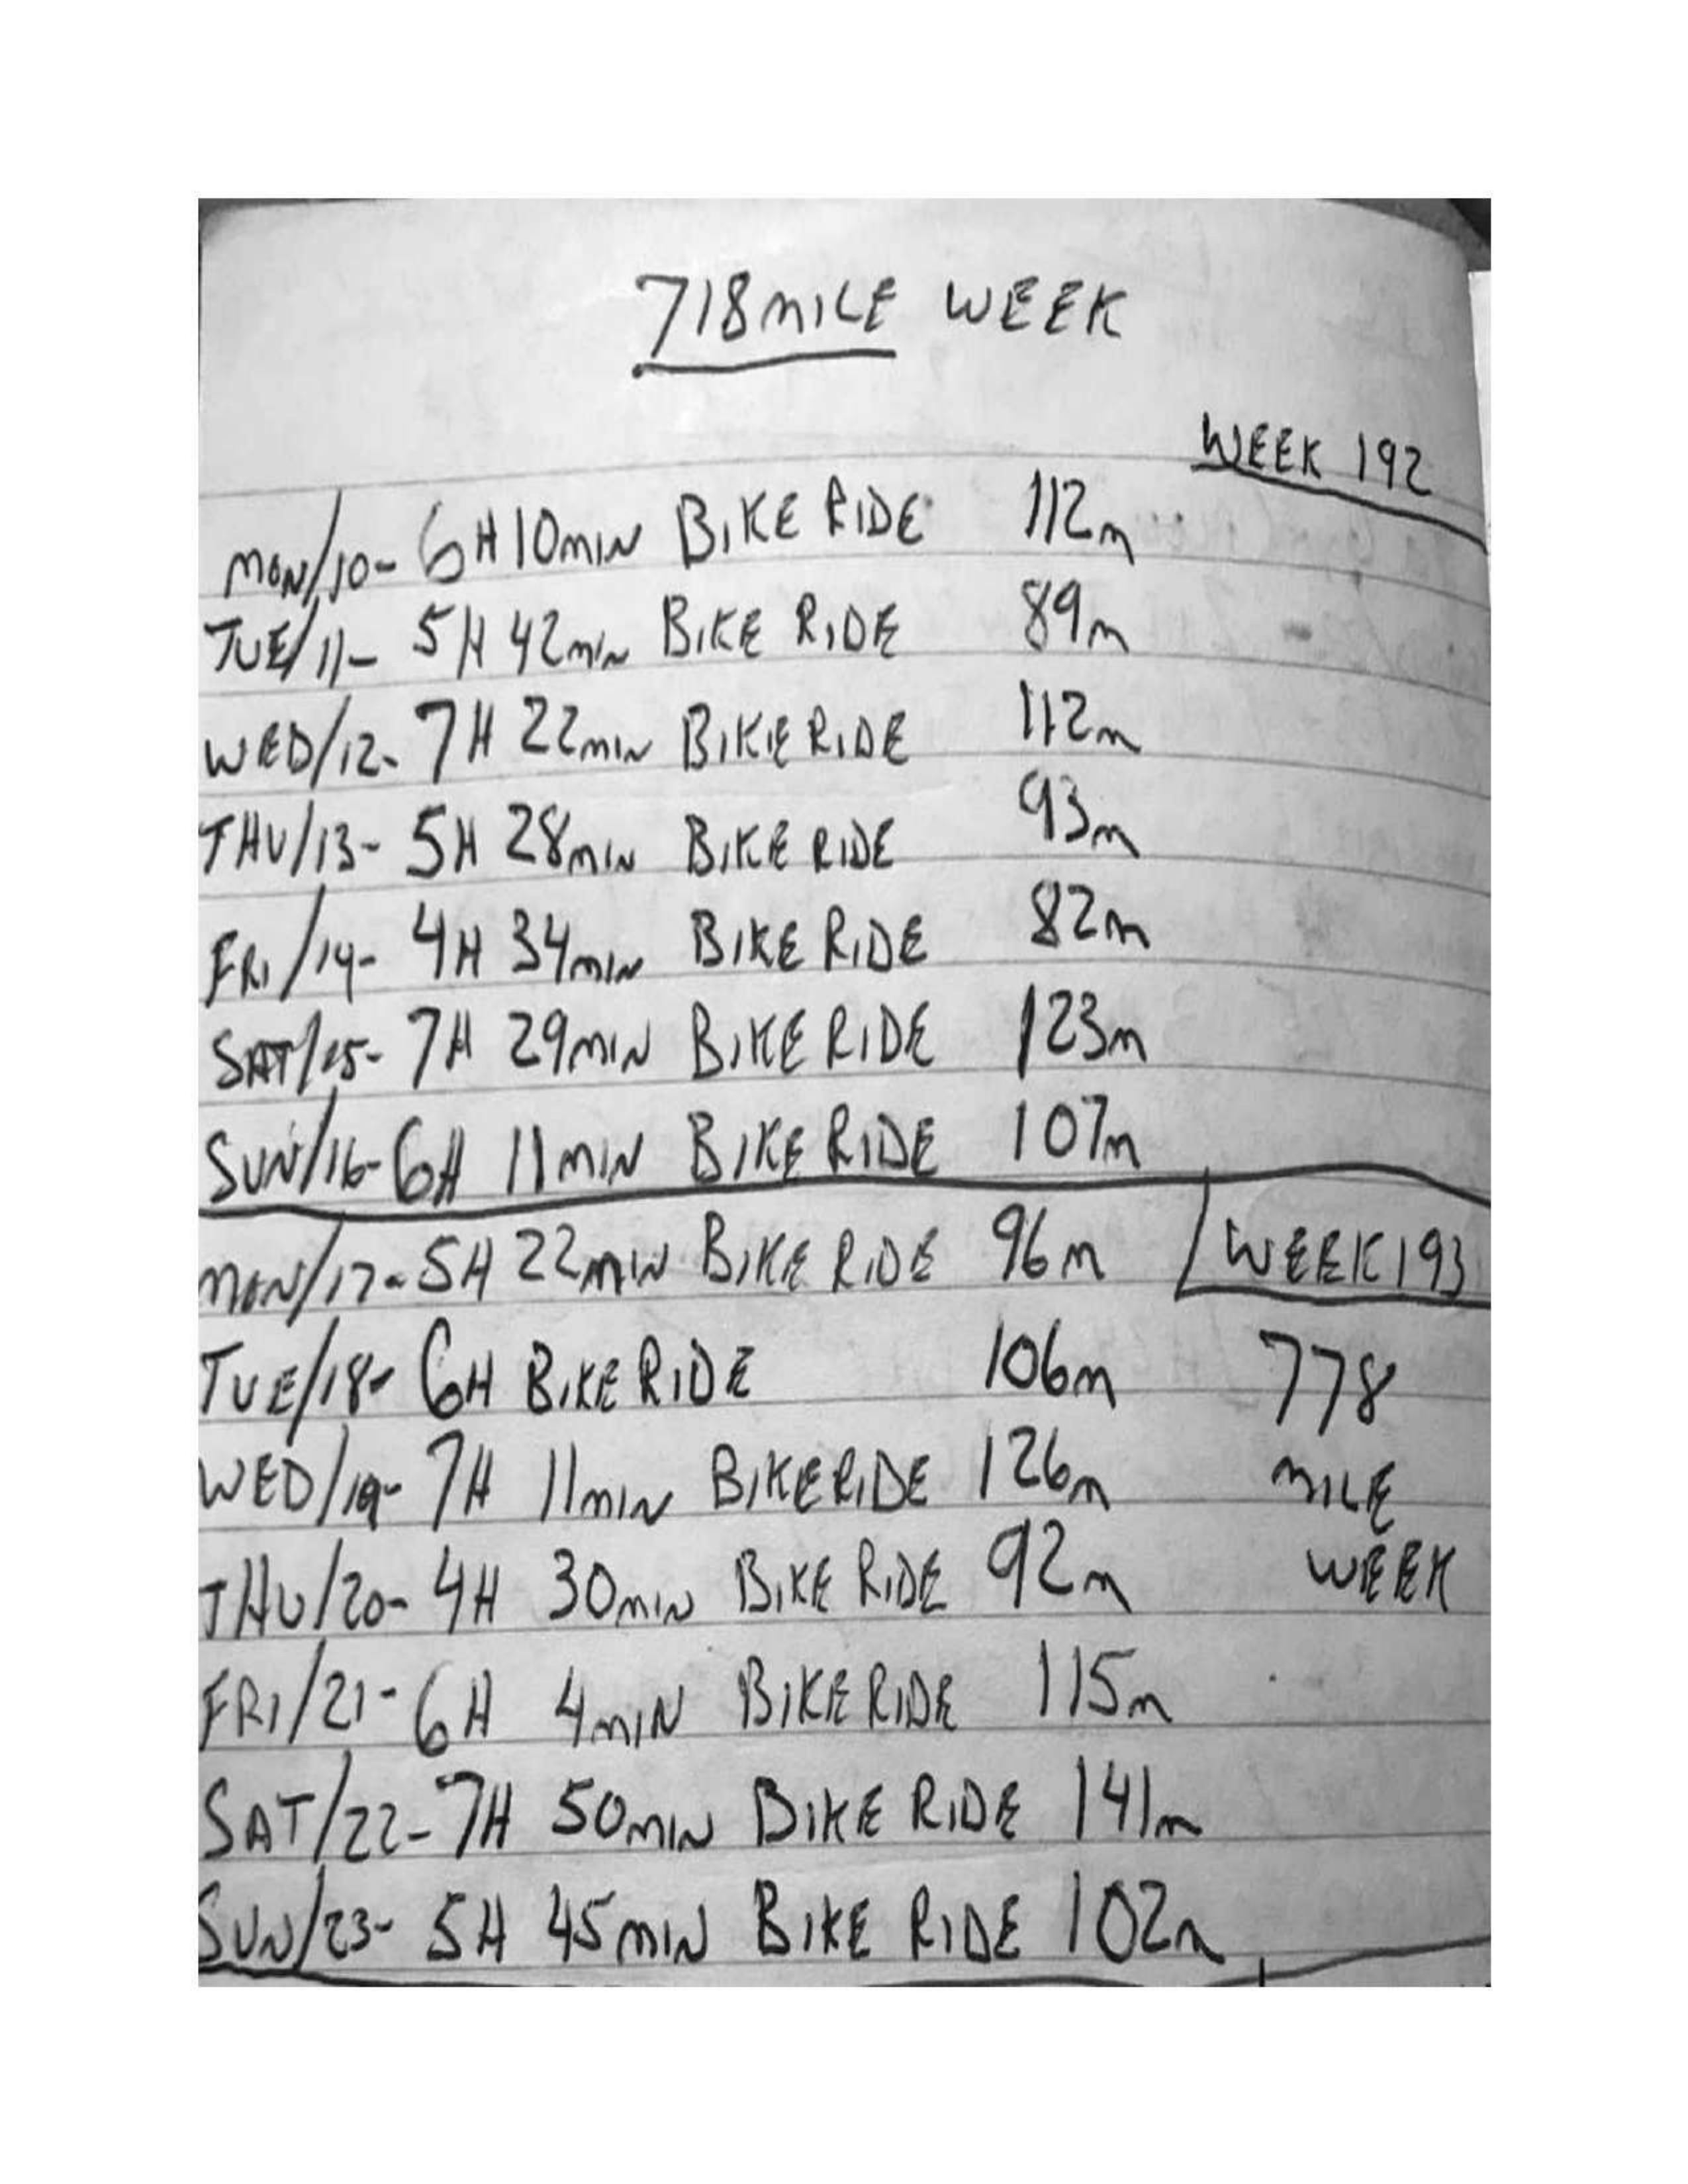 718 MILE WEEK
WEEK 192
MON/10- 6H 10MIN BIKE RIDE 112m
TUE/11- 5H 42MIN BIKE RIDE 89m
WED/12- 7H 22MIN BIKE RIDE 112m
THU/13- 5H 28MIN BIKE RIDE 93m
FRI/14- 4H 34MIN BIKE RIDE 82m
SAT/15- 7H 29MIN BIKE RIDE 123m
SUN/16- 6H 11MIN BIKE RIDE 107m
MON/17- 5H 22MIN BIKE RIDE 96m WEEK 193
TUE/18- 6H BIKE RIDE 106m 778
WED/19- 7H 11MIN BIKE RIDE 126m MILE
THU/20- 4H 30MIN BIKE RIDE 92m WEEK
FRI/21- 6H 4MIN BIKE RIDE 115m
SAT/22- 7H 50MIN BIKE RIDE 141m
SUN/23- 5H 45MIN BIKE RIDE 102m